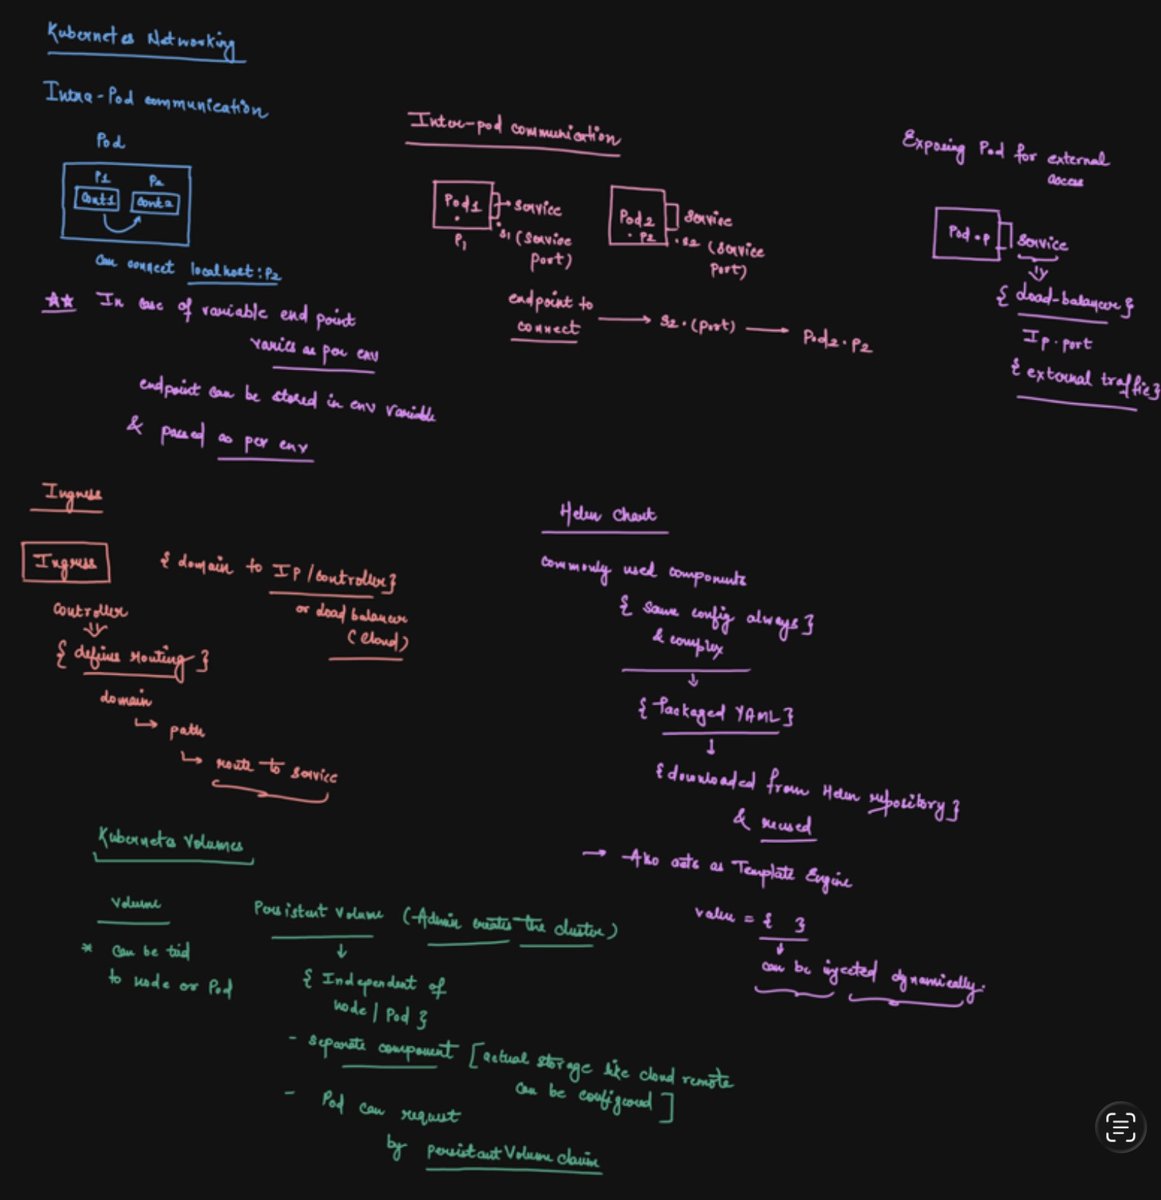 Kubernetes Networking
Intra-Pod communication
Pod
P1 P2
Cont1 Cont2
Can connect localhost:P2
** In case of variable end point
varies as per env
endpoint can be stored in env variable
& passed as per env
Inter-pod communication
Pod1 → service
P1
S1 (service
port)
Pod2 service
. P2 . S2 (service
port)
endpoint to
connect → S2.(port) → Pod2.P2
Exposing Pod for external
access
Pod.P service
{ load-balancer }
Ip.port
{ external traffic }
Ingress
Ingress { domain to IP/controller }
or load balancer
(cloud)
controller
{ defines routing }
domain
↳ path
↳ route to service
Helm Chart
commonly used components
{ same config always }
& complex
↓
{ Packaged YAML }
↓
{ downloaded from Helm repository }
& reused
→ Also acts as Template Engine
value = { }
↓
can be injected dynamically.
Kubernetes Volumes
Volume
* Can be tied
to node or Pod
Persistent Volume (Admin creates the cluster)
↓
{ Independent of
node | Pod }
- separate component [actual storage like cloud remote
can be configured]
- Pod can request
by persistantVolume claim